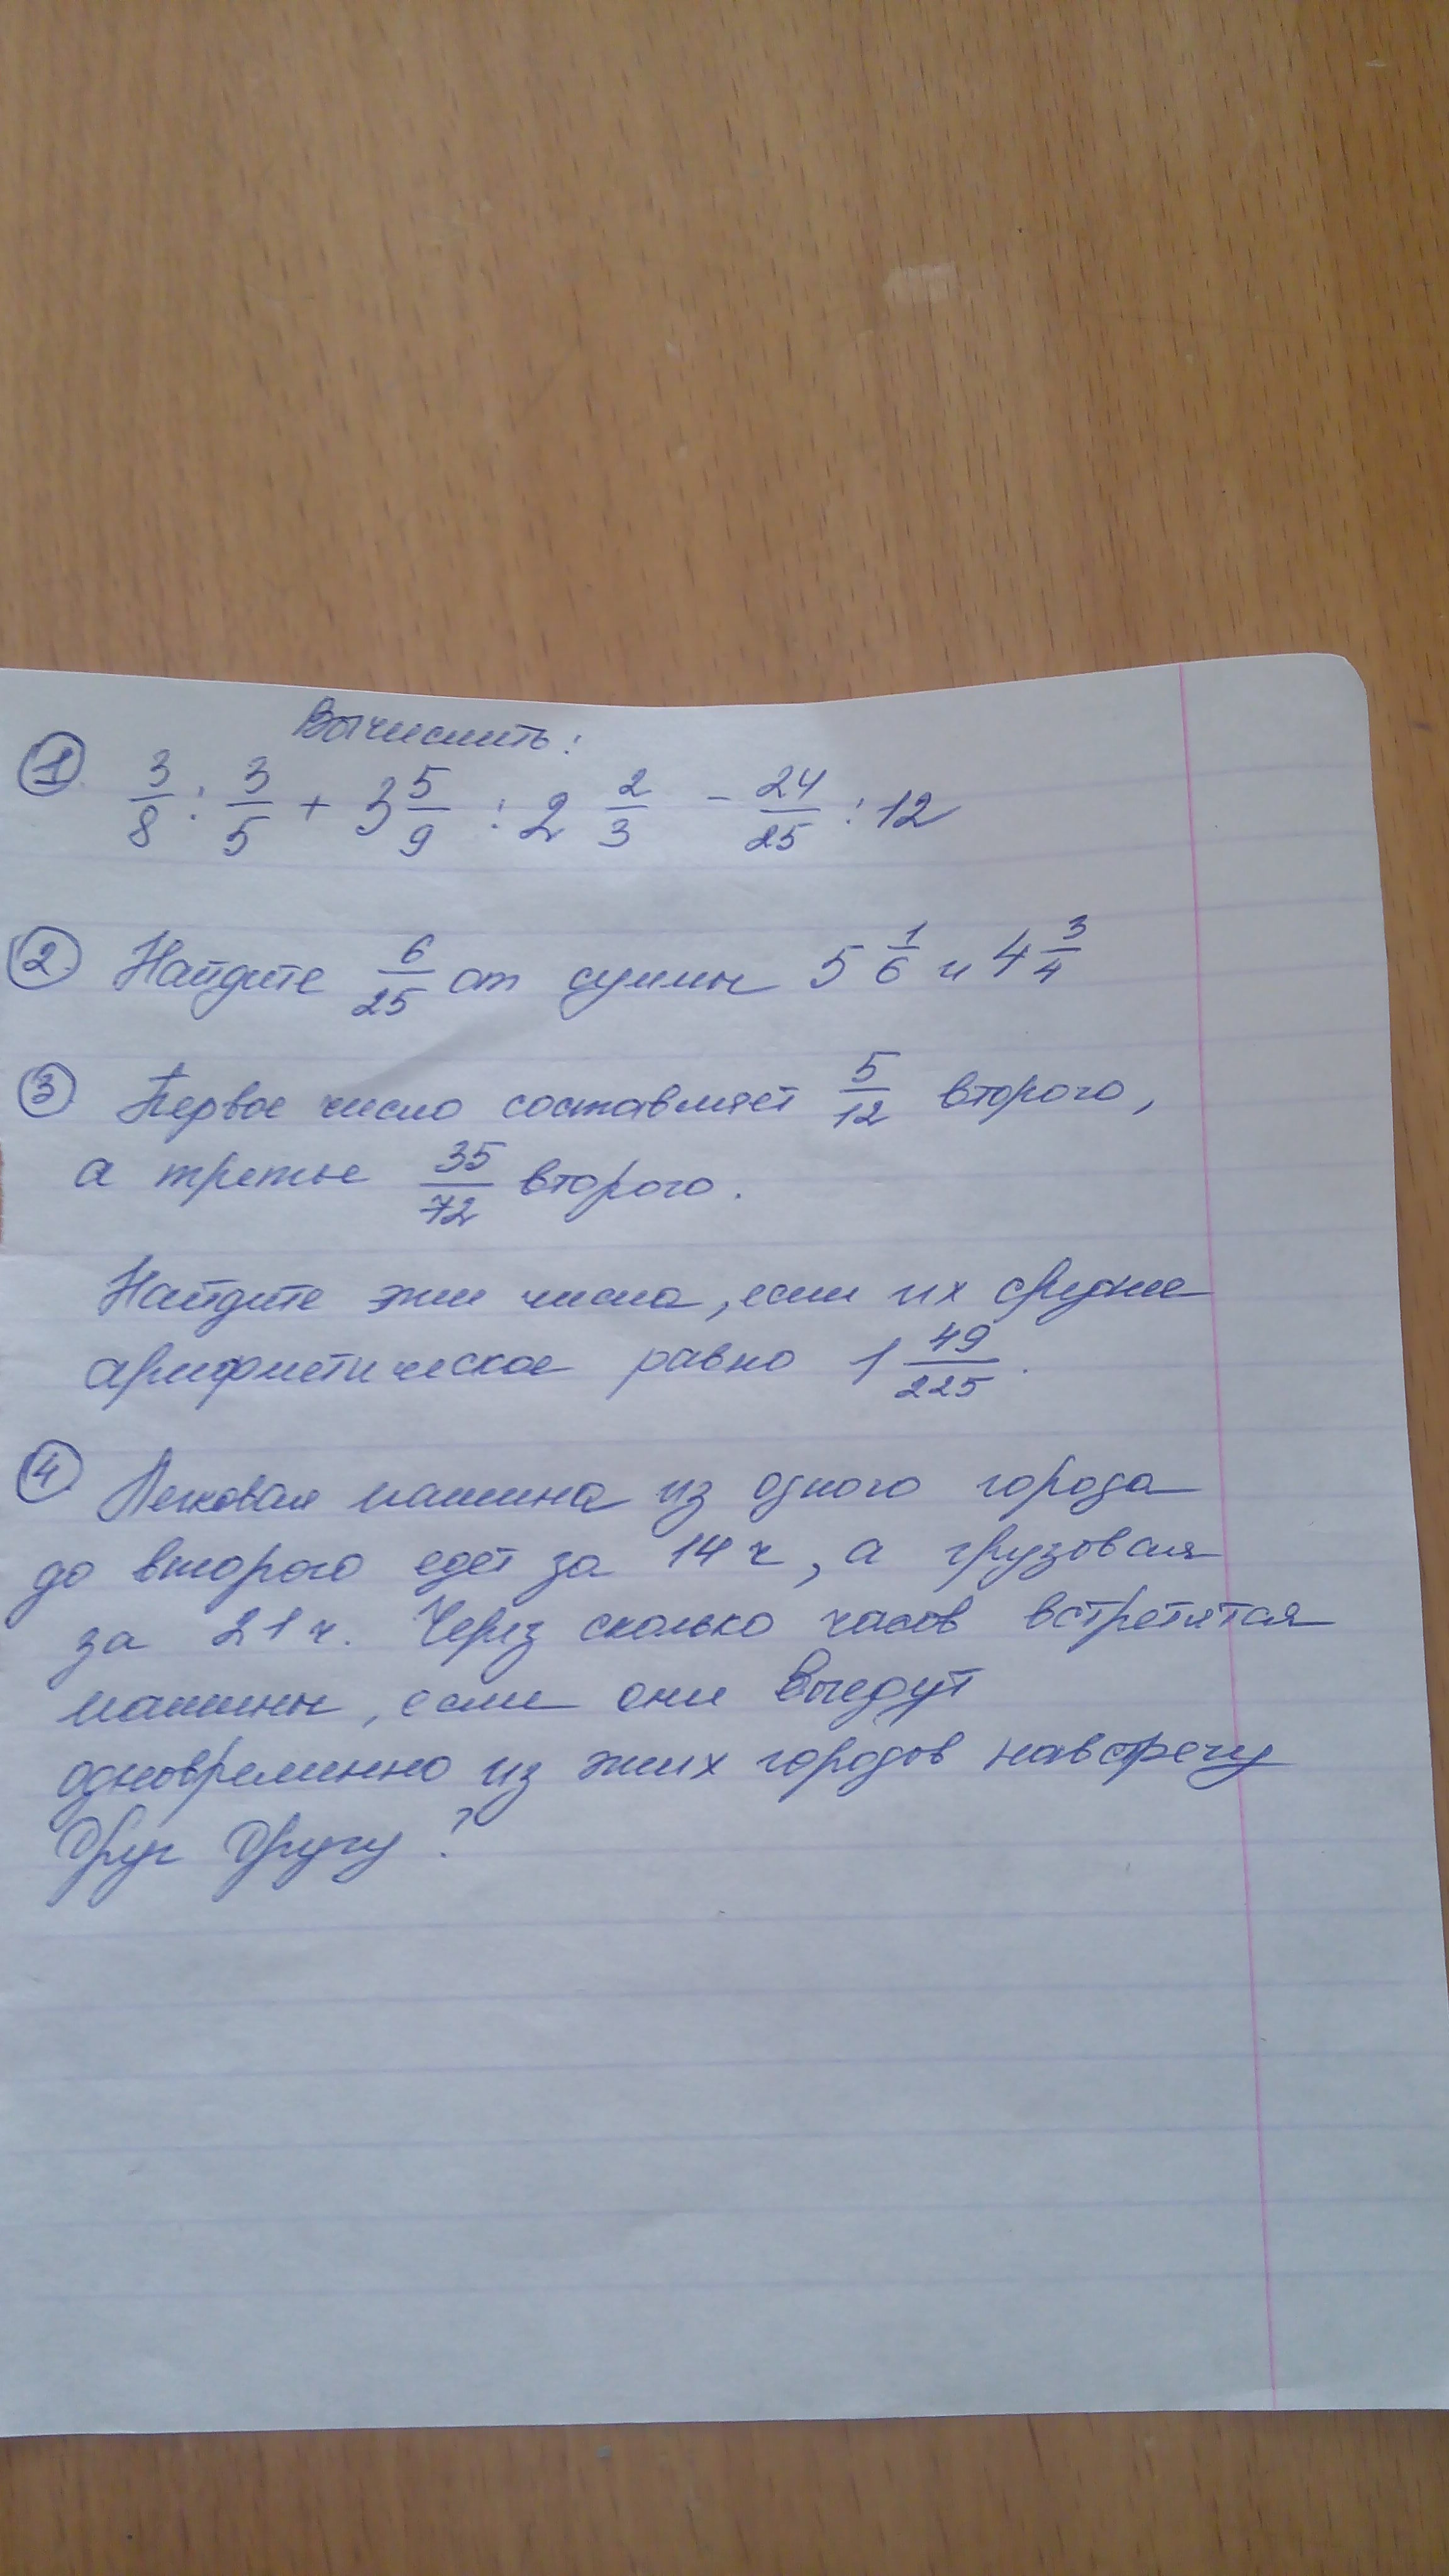 Вычислить:
① 3/8 : 3/5 + 3 5/9 : 2 2/3 - 24/25 : 12
② Найдите 6/25 от суммы 5 1/6 и 4 3/4
③ Первое число составляет 5/12 второго,
а третье 35/72 второго.
Найдите эти числа, если их среднее
арифметическое равно 1 49/225.
④ Легковая машина из одного города
до второго едет за 14 ч, а грузовая
за 21 ч. Через сколько часов встретятся
машины, если они выедут
одновременно из этих городов навстречу
друг другу?